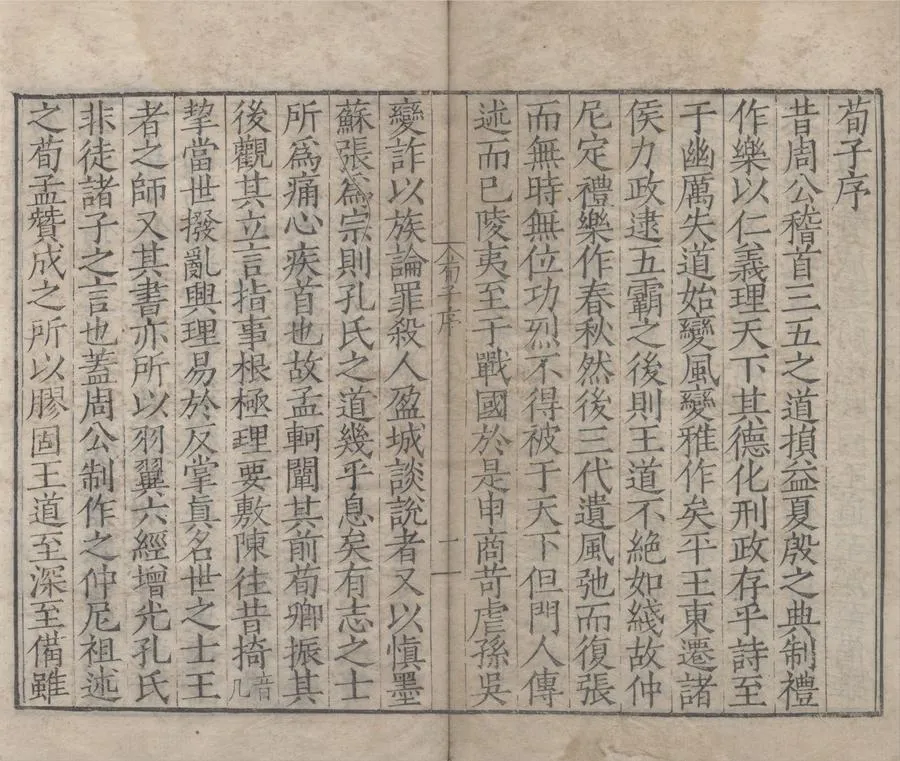 荀子序
昔周公稽首三五之道損益夏殷之典制禮
作樂以仁義理天下其德化刑政存乎詩至
于幽厲失道始變風變雅作矣平王東遷諸
侯力政逮五霸之後則王道不絕如綫故仲
尼定禮樂作春秋然後三代遺風弛而復張
而無時無位功烈不得被于天下但門人傳
述而已陵夷至于戰國於是申商苛虐孫吳
荀子序
一
變詐以族論罪殺人盈城談說者又以慎墨
蘇張爲宗則孔氏之道幾乎息矣有志之士
所爲痛心疾首也故孟軻闡其前荀卿振其
後觀其立言指事根極理要敷陳往昔掎音几
挈當世撥亂興理易於反掌眞名世之士王
者之師又其書亦所以羽翼六經增光孔氏
非徒諸子之言也蓋周公制作之仲尼祖述
之荀孟贊成之所以膠固王道至深至備雖